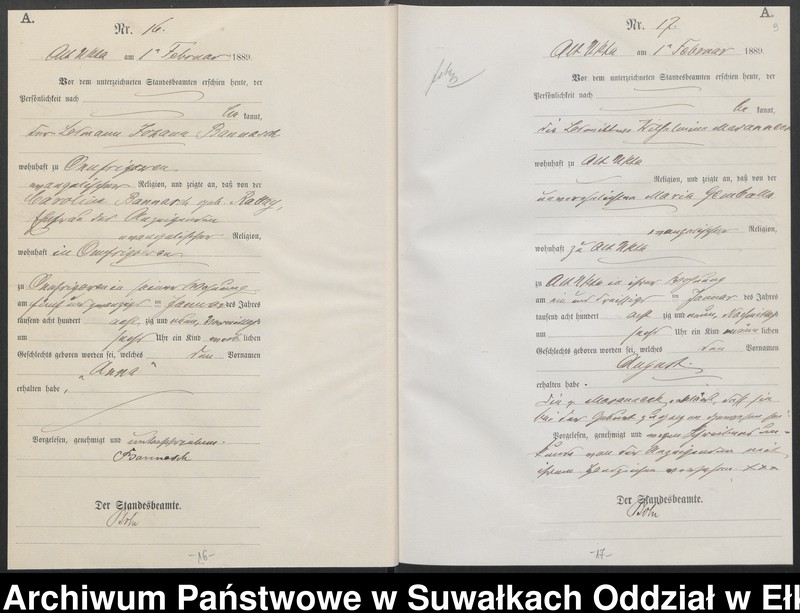 A.
Nr. 16.
Alt Ukta am 1n Februar 1889.
Vor dem unterzeichneten Standesbeamten erschien heute, der
Persönlichkeit nach
be kannt,
der Losmann Johann Bannasch
wohnhaft zu Onufrigowen
evangelischer Religion, und zeigte an, daß von der
Carolina Bannasch geb.
Ehefrau des Anzeigenden
evangelischer Religion,
wohnhaft in Onufrigowen
zu Onufrigowen in seiner Wohnung
am fünf und zwanzigst en Januar des Jahres
tausend acht hundert acht zig und neun, Vormittags
um sechs Uhr ein Kind weib lichen
Geschlechts geboren worden sei, welches den Vornamen
„Anna"
erhalten habe,
Vorgelesen, genehmigt und unterschrieben.
Bannasch
Der Standesbeamte.
-16-
A.
9
Nr. 17.
Alt Ukta am 1n Februar 1889.
Vor dem unterzeichneten Standesbeamten erschien heute, der
Persönlichkeit nach
be kannt,
die Wilhelmine
wohnhaft zu Alt Ukta
Religion, und zeigte an, daß von der
unverehelichten Maria Gemballa
evangelischer Religion,
wohnhaft zu Alt Ukta
zu Alt Ukta in ihrer Wohnung
am ein und dreißigst en Januar des Jahres
tausend acht hundert acht zig und neun, Nachmittags
um sechs Uhr ein Kind männ lichen
Geschlechts geboren worden sei, welches den Vornamen
August.
erhalten habe.
Die p. erklärt, daß sie
bei der Geburt zugegen gewesen sei.
Vorgelesen, genehmigt und wegen Schreibens un-
kunde von der Anzeigenden mit
ihrem Handzeichen versehen. xxx
Der Standesbeamte.
-17-
Archiwum Państwowe w Suwałkach Oddział w Eł